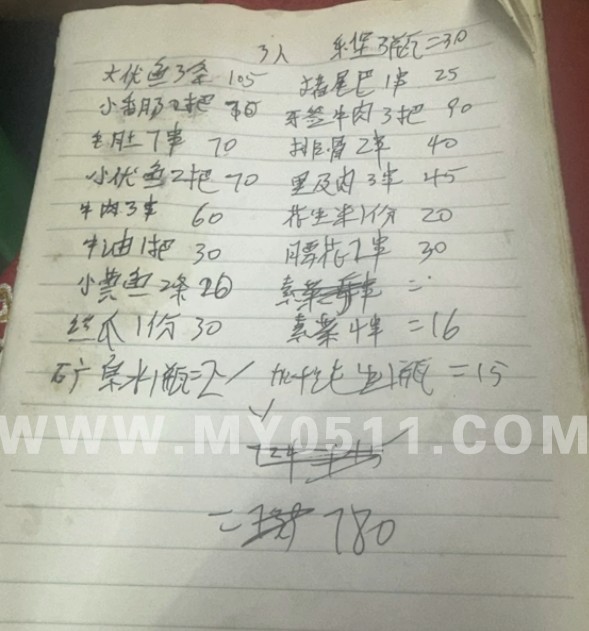 3人 乐堡3瓶=30
大优鱼3条 105 猪尾巴1串 25
小香肠2把 牙签牛肉3把 90
毛肚7串 70 排骨2串 40
小优鱼2把 70 里及肉3串 45
牛肉3串 60 花生米1份 20
牛油1把 30 腰花2串 30
小黄鱼2条 20 素菜
丝瓜1份 30 素菜4串 =16
矿泉水1瓶=2 1瓶 =15
WWW.MY0511.COM
= 780